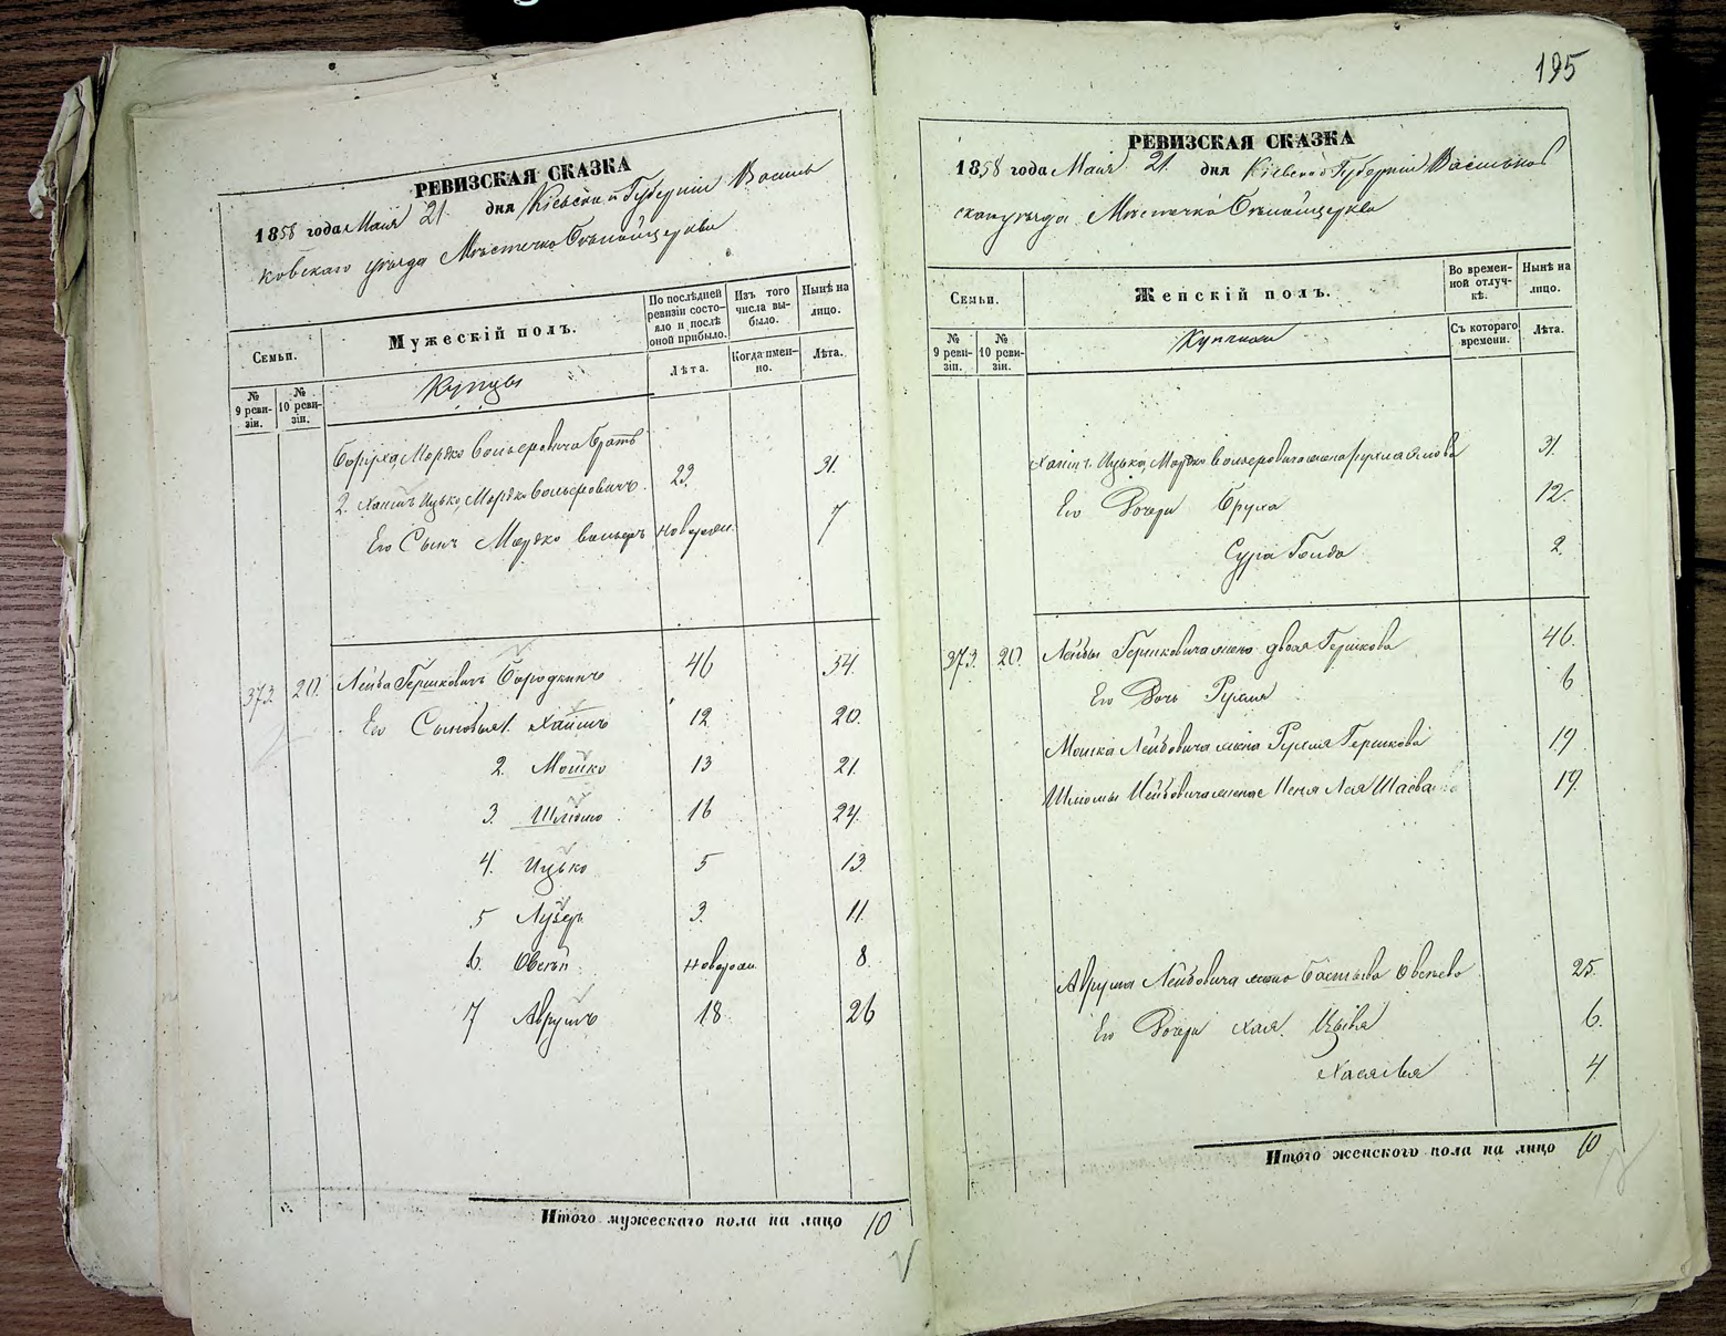 195
РЕВИЗСКАЯ СКАЗКА
1858 года Маія 21 дня Кіевской Губерніи Василь
ковскаго уѣзда Мѣстечка Бѣлойцеркви
Семьи.
Мужескій полъ.
По послѣдней ревизіи состояло и послѣ оной прибыло.
Изъ того числа выбыло.
Нынѣ на лицо.
№ 9 ревизіи.
№ 10 ревизіи.
Купцы
Лѣта.
Когда именно.
Лѣта.
Мордко Вольфовича братъ
2. Хаимъ Ицько Мордко Вольфовичъ 23. 31.
Его Сынъ Мордко Вольфъ новорожд. 7
373. 20. Лейба Гершковичъ Бородкинъ 46 54.
Его Сыновья 1. Хаимъ 12 20.
2. Мошко 13 21.
3. Шліомо 16 24.
4. Ицько 5 13.
5 Лузеръ 3. 11.
6. Овсѣй новорож. 8.
7 Аврумъ 18. 26
Итого мужескаго пола на лицо 10
РЕВИЗСКАЯ СКАЗКА
1858 года Маія 21. дня Кіевской Губерніи Васильков
скаго уѣзда Мѣстечка Бѣлойцеркви
Семьи.
Женскій полъ.
Во временной отлучкѣ.
Нынѣ на лицо.
№ 9 ревизіи.
№ 10 ревизіи.
Съ котораго времени.
Лѣта.
Хаима Ицька Мордко Вольфовича жена 31.
Его Дочери Бруха 12.
Сура Голда 2.
373. 20. Лейбы Гершковича жена Двоя Гершкова 46.
Его Дочь Рухля 6
Мошка Лейбовича жена Рухля Гершкова 19
Шліомы Лейбовича жена Лея Шаева 19.
Аврума Лейбовича жена Овсѣева 25.
Его Дочери Хая Цывя 6.
4
Итого женского пола на лицо 10